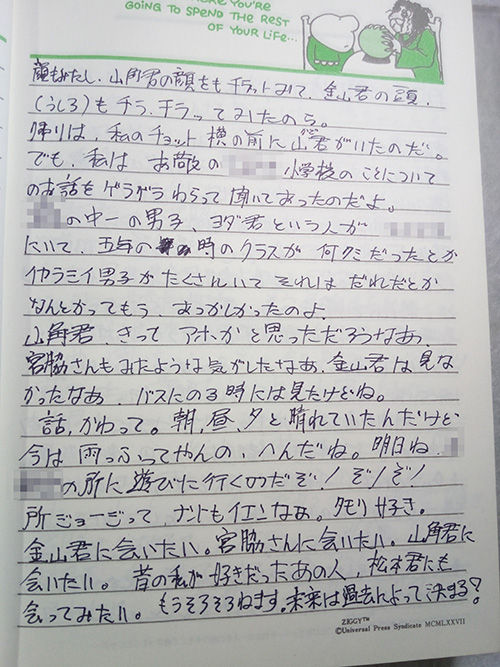 RE YOU'RE
GOING TO SPEND THE REST
OF YOUR LIFE...
顔もみたし、山角君の顔をもチラットみて、金山君の頭、
(うしろ)もチラ、チラッてみたのら。
帰りは、私のチョット横の前に山角君がいたのだ。
でも、私は お敬の 小学校のことについて
のお話をゲラゲラわらって聞いてあったのだよ。
の中一の男子、ヨダ君という人が
にいて、五年の 時のクラスが何クミだったとか
イヤラミイ男子がたくさんいてそれはだれだとか
なんとかってもう、おっかしかったのよ。
山角君、きってアホかと思っただろうなあ、
宮脇さんもみたような気がしたなあ、金山君は見な
かったなあ、バスにのる時には見たけどね。
話、かわって。朝、昼、夕と晴れていたんだけど
今は雨っふってやんの、へんだね。明日ね、
の所に遊びに行くのだぞ!ぞ!ぞ!
所ジョージって、ナントもイエンなあ。タモリ好き。
金山君に会いたい。宮脇さんに会いたい。山角君に
会いたい。昔の私が好きだったあの人、松本君にも
会ってみたい。もうそろそろねます。未来は過去によって決まる?
ZIGGY™
©Universal Press Syndicate MCMLXXVII